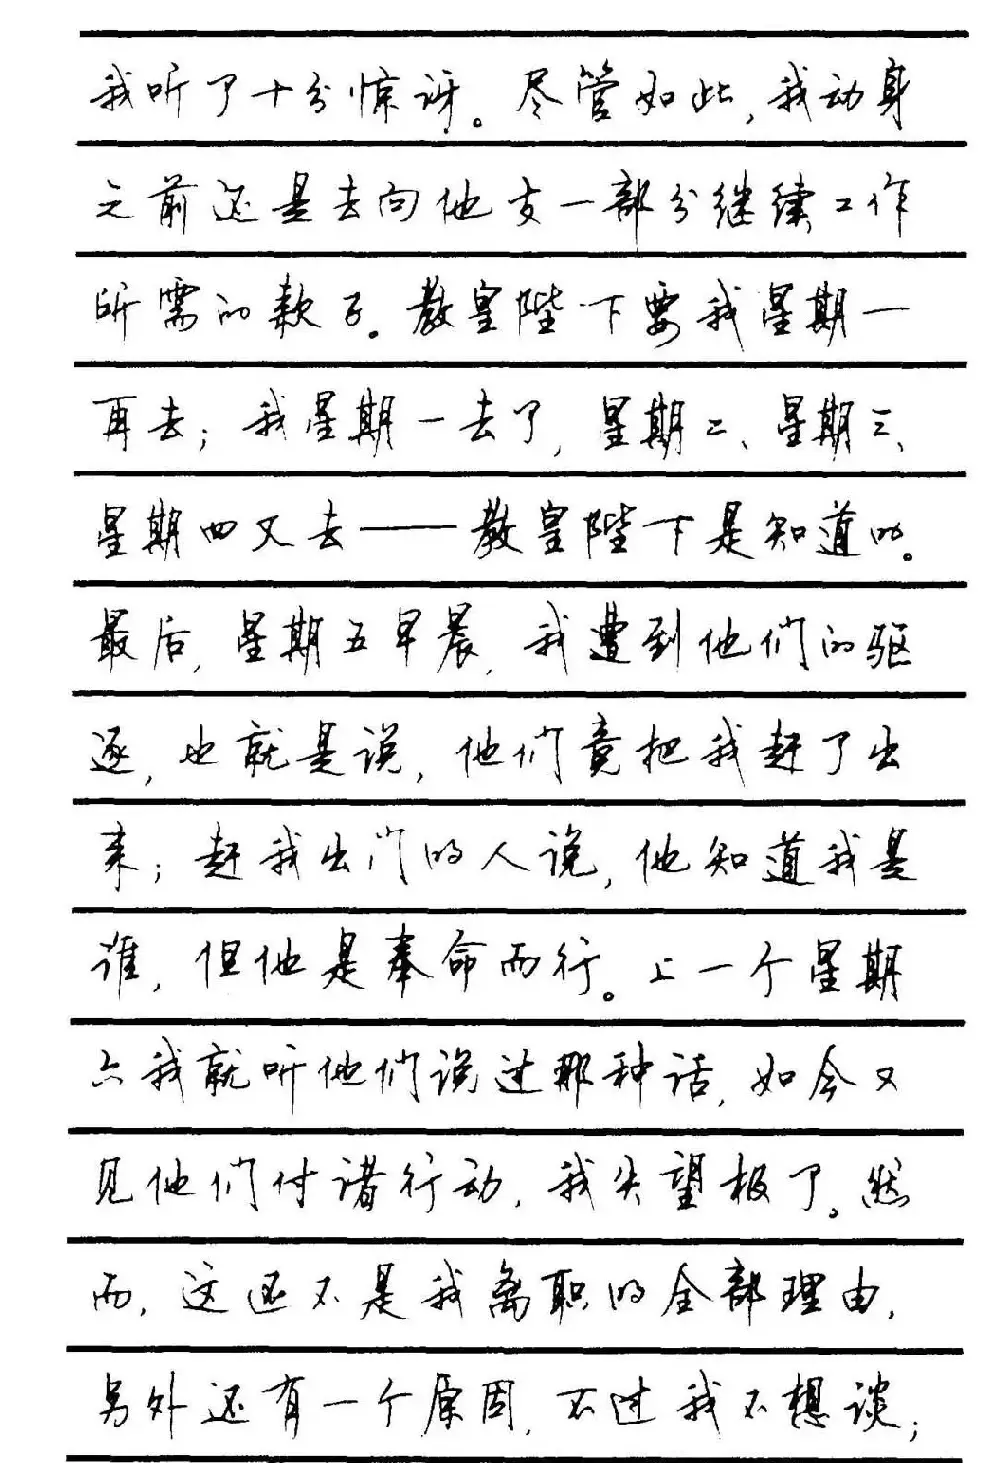 我听了十分惊讶。尽管如此,我动身
之前还是去向他支一部分继续工作
所需的款子。教皇陛下要我星期一
再去;我星期一去了,星期二、星期三、
星期四又去——教皇陛下是知道的。
最后,星期五早晨,我遭到他们的驱
逐,也就是说,他们竟把我赶了出
来;赶我出门的人说,他知道我是
谁,但他是奉命而行。上一个星期
六我就听他们说过那种话,如今又
见他们付诸行动,我失望极了。然
而,这还不是我离职的全部理由,
另外还有一个原因,不过我不想谈;